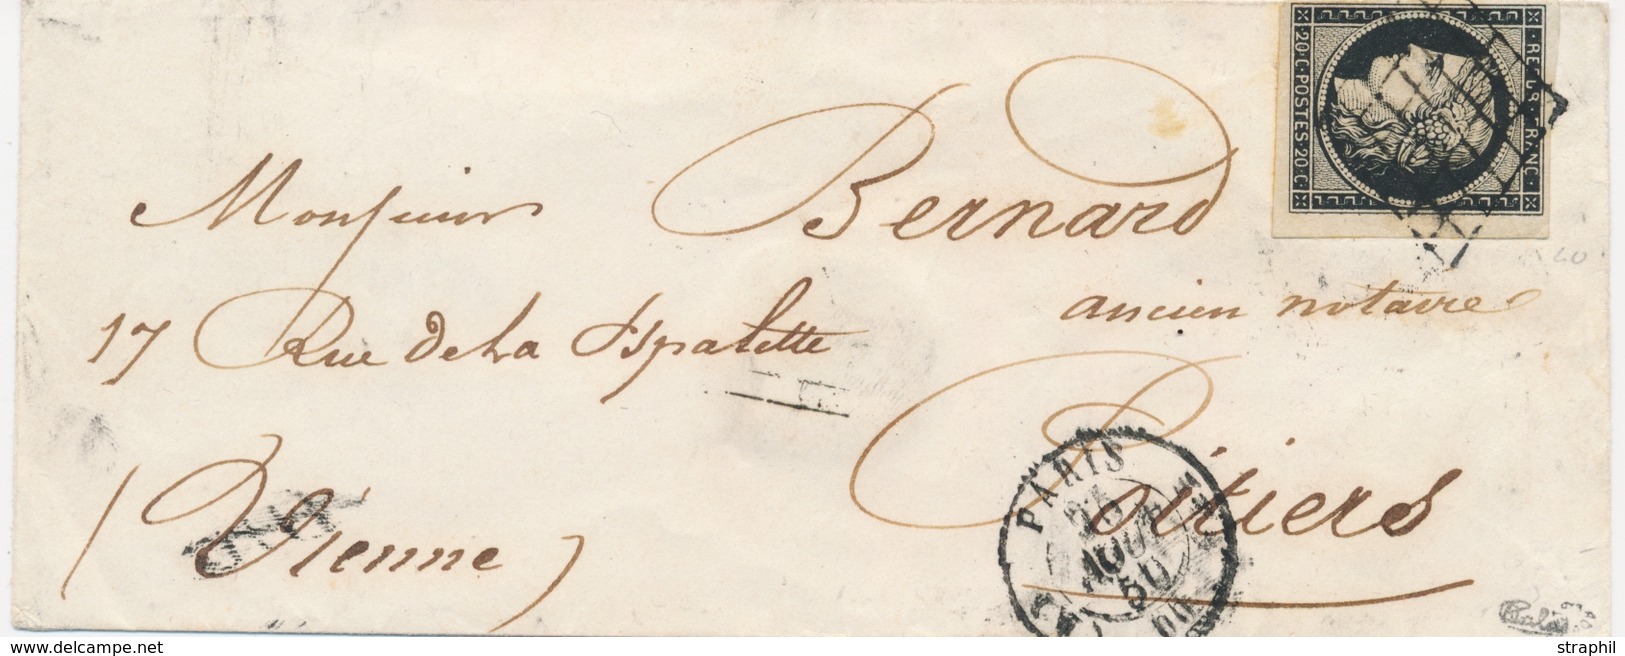 REPUB. FRANC.
20.C.POSTES.20.C
Monsieur Bernard
ancien notaire
17 Rue de La Espalette
Poitiers
(Vienne)
PARIS
AOUT
50
60
Calves
straphil